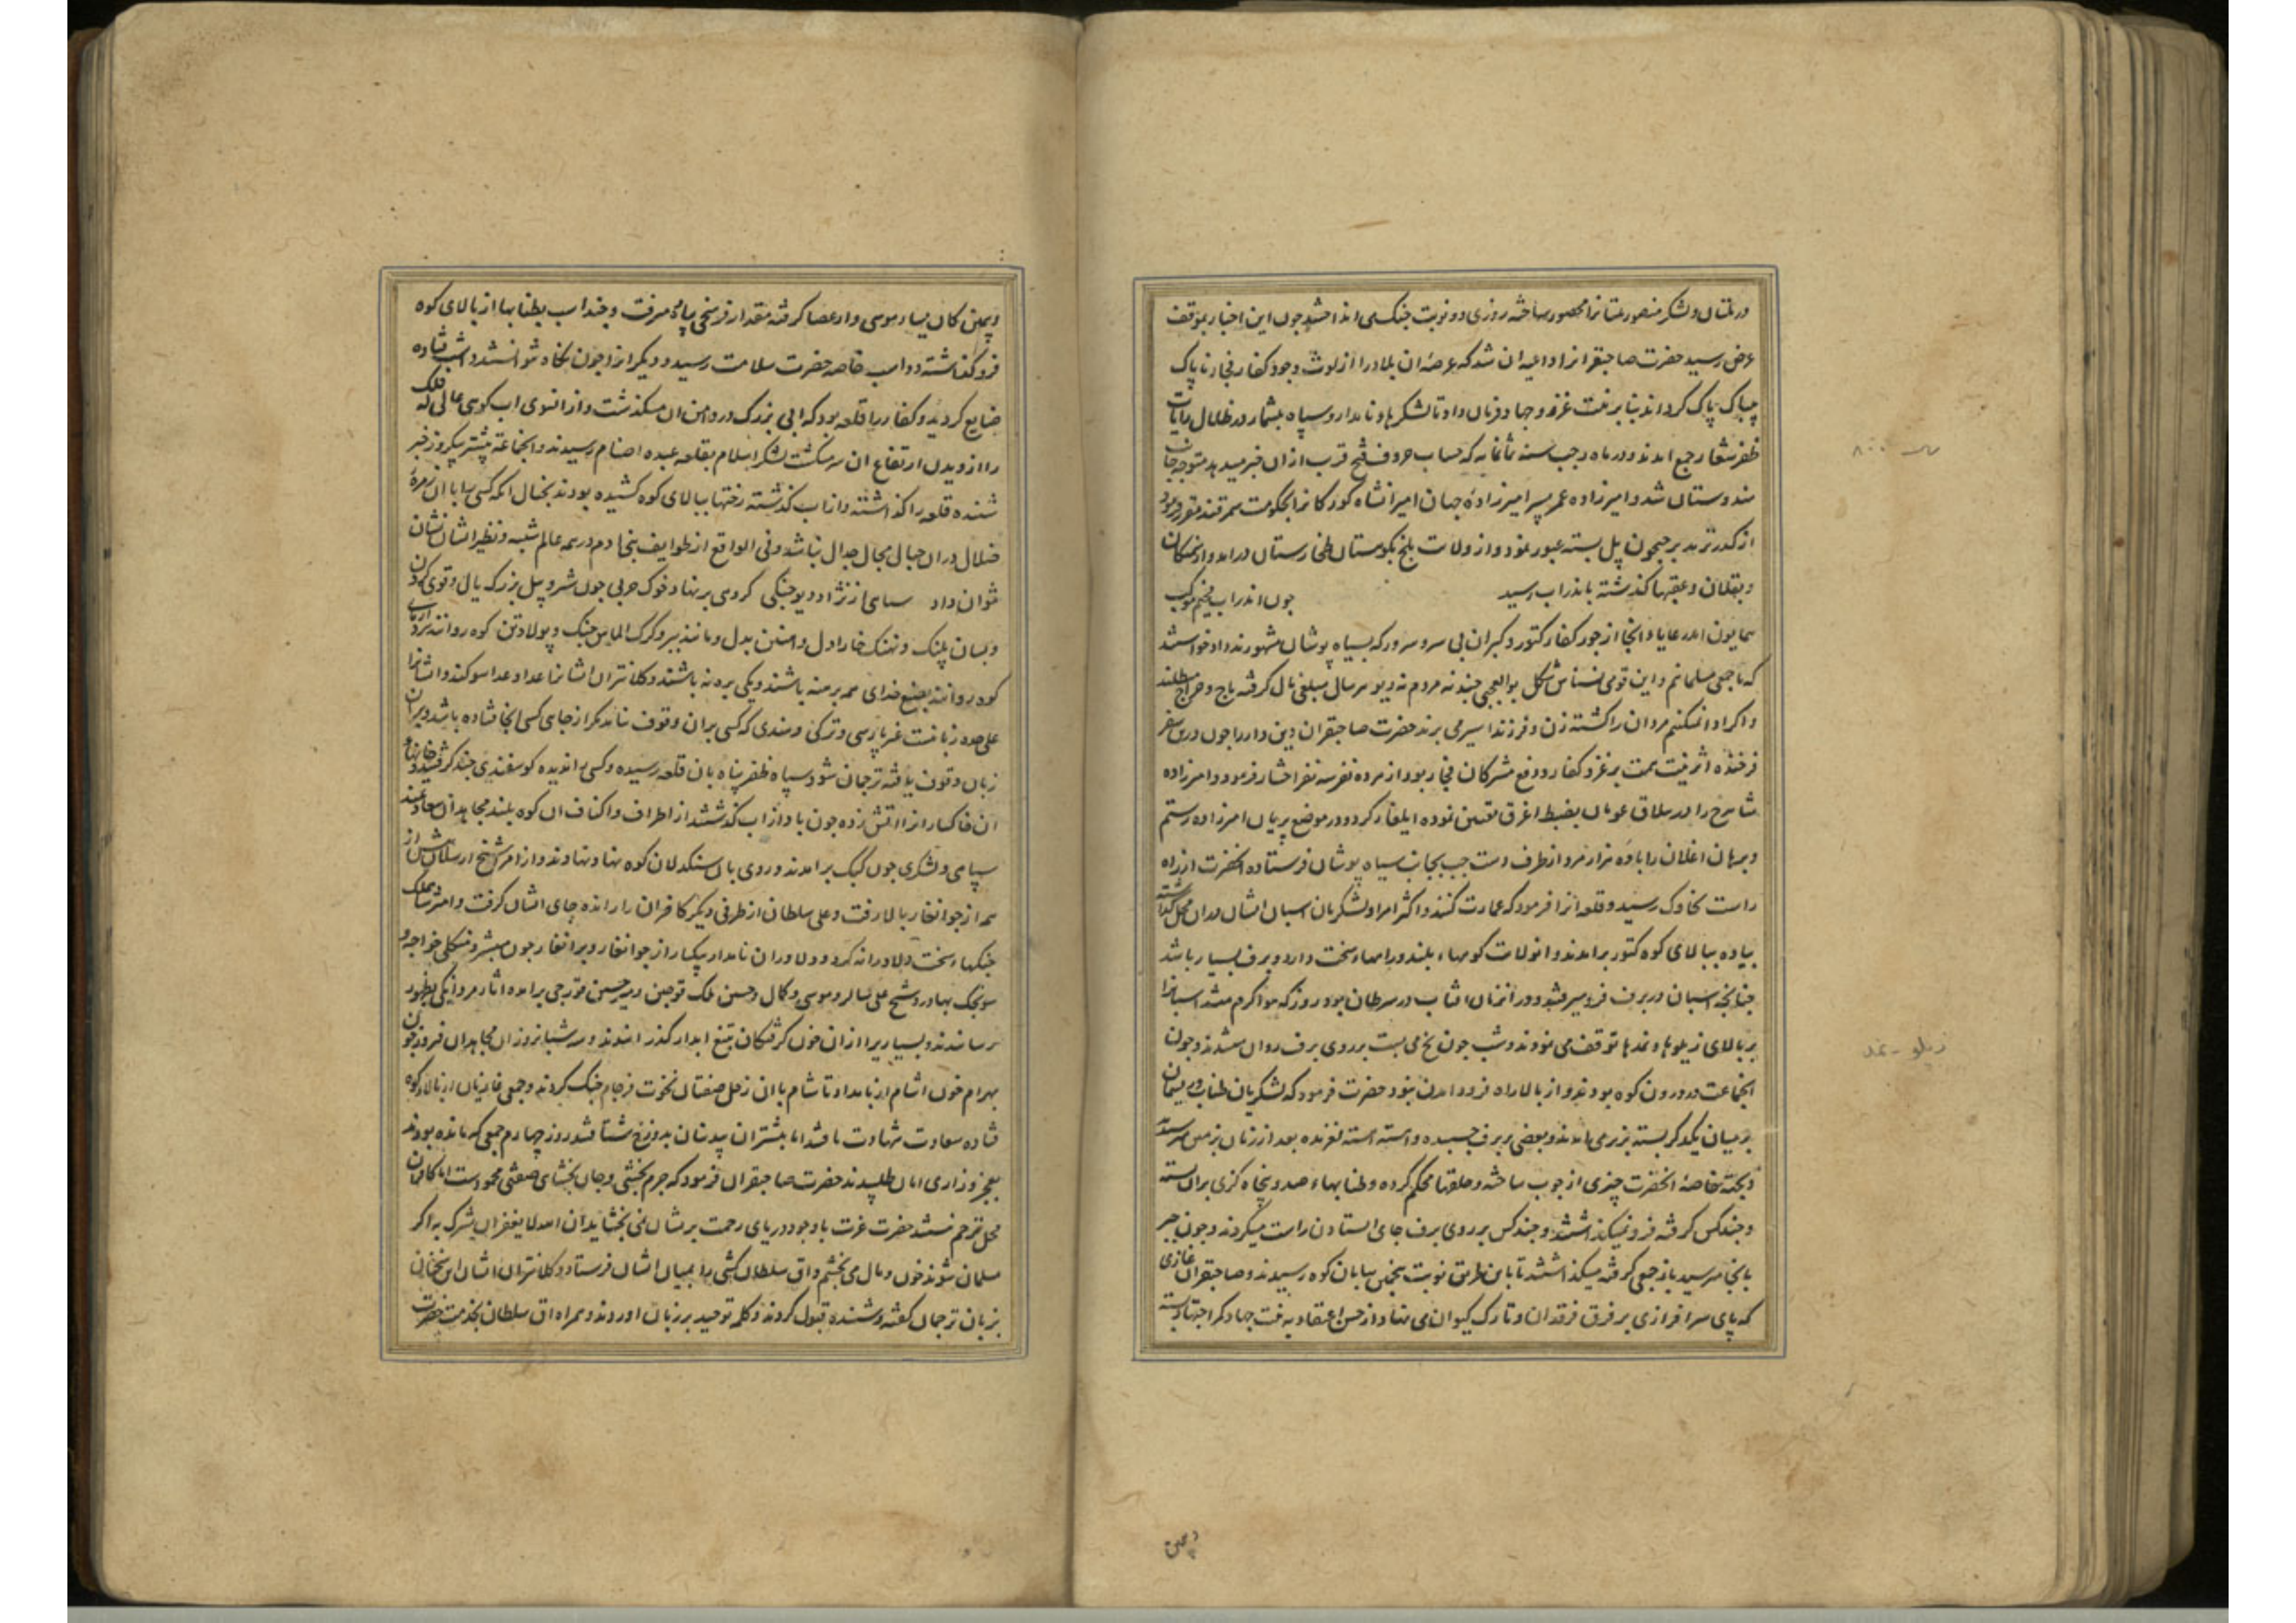 در ملتان ولشکر منصور ملتانرا محصور ساخته روزی دو نوبت جنک می انداختند چون این اخبار بموقف
عرض رسید حضرت صاحبقرانرا داعیه ان شد که عرصه ان بلاد را از لوث وجود کفار فجار ناپاک
پاک کرداند بنابر نیت غزو وجهاد فرمان داد تا لشکرها نامدار وسپاه بیشمار در ظلال رایات
ظفر شعار جمع امدند ودر ماه رجب سنه ثمانمایه که حساب حروف فتح قریب ازان خبر میدهد متوجه جانب
هندوستان شد وامیرزاده عمر پسر امیرزاده جهان امیرانشاه کورکانرا بحکومت سمرقند مقرر فرمود
از کذر ترمد بر جیحون پل بسته عبور نمود واز ولایت بلخ بکوهستان طخارستان درامد واز
وبقلان وعقبها کذشته باندراب رسید چون اندراب مخیم موکب
همایون امد رعایاء انجا از جور کفار کتور وکبران بی سر وسرور که بسیاه پوشان مشهورند دادخواستند
که ما جمعی مسلمانیم واین قومی نسناس شکل بوالعجبی چند نه مردم نه دیو هر سال مبلغی مال کرفته باج وخراج میطلبند
واکر ادا نمیکنیم مردان را کشته زن وفرزند اسیر می برند حضرت صاحبقران دین دار را چون درین سفر
فرخنده اثر نیت همت بر غزو کفار ودفع مشرکان فجار بود از هر ده نفر سه نفر اختیار فرمود وامیرزاده
شاهرخ را در ییلاق بضبط اغرق تعیین نموده ایلغار کرد ودر موضع پریان امیرزاده رستم
وبرهان اغلان را با ده هزار مرد از طرف دست چپ بجانب سیاه پوشان فرستاده انحضرت از راه
راست بخاوک رسید وقلعه انرا فرمود که عمارت کنند واکثر امرا ولشکریان اسبان ایشان دران محل کذاشته
پیاده ببالای کوه کتور برامدند وان ولایت کوهها بلند وراهها سخت دارد وبرف بسیار باشد
چنانچه اسبان در برف فرو میرفتند ودران زمان افتاب در سرطان بود روز که هوا کرم میشد اسبانرا
بر بالای زیلوها ونمدها توقف می نمودند وشب چون یخ می بست بر روی برف روان میشدند وچون
انجماعت در درون کوه بودند واز بالا راه فرود امدن نبود حضرت فرمود که لشکریان طناب وریسمان
بر میان یکدیکر بسته بزیر می امدند وبعضی بر برف چسبیده واهسته اهسته لغزنده بعد از زمان بزمین میرسیدند
وبجهة خاصه انحضرت چیزی از چوب ساخته وحلقها محکم کرده وطنابها صد وپنجاه کزی بران بسته
وچند کس کرفته فرو میکذاشتند وچند کس بر روی برف جای ایستادن راست میکردند وچون
بانجا میرسید باز جمعی کرفته میکذاشتند تا باین طریق نوبت پنجم بپایان کوه رسیدند وصاحبقران غازی
که پای سرافرازی بر فرق فرقدان وتارک کیوان می نهاد از حسن اعتقاد به نیت جهاد کمر اجتهاد بسته
زیلو - نمد
ویمین کان میاد موسی وار عصا کرفته مقدار فرسخی پیاده میرفت وچند اسب بطنابها از بالای کوه
فرو کذاشته دو اسب خاصه حضرت سلامت رسید ودیکرانرا چون نکاه نتوانستند داشت فتاده
ضایع کردید وکفار را قلعه بود که ابی بزرک در دامن ان میکذشت وازانسوی اب کوهی عالی که فلک
را از دیدن ارتفاع ان سر میکشت لشکر اسلام بقلعه عبده اصنام رسیدند وانجماعت پیشتر بیکروز خبر
شنیده قلعه را کذاشته وازاب کذشته رختها ببالای کوه کشیده بودند بخیال انکه کسی را با ان زمره
ضلال دران جبال مجال جدال نباشد وفی الواقع از طوایف بنی ادم در همه عالم شبیه ونظیر ایشان نشان
نتوان داد سپاهی نژاد دیو جنکی کروهی برنهاد خوک حربی چون شیر وپیل بزرک یال وقوی کردن
وبسان پلنک ونهنک خارا دل واهنین بدل ومانند ببر وکرک الماس چنک وپولاد تن کوه روانند
کوه روانند بصنع خدای همه برهنه باشند ویکی بره نه باشند وکلانتران ایشانرا عدا وعداسو کنند وایشانرا
علی حده زبانیست غیر پارسی وترکی وهندی که کسی بران وقوف نیابد مکر از جای کسی انجا فتاده باشد وبران
زبان وقوف یافته ترجمان شود سپاه ظفر پناه بان قلعه رسیده وکسی را ندیده کوسفندی چند کرفتند وخانها
ان خاکسارانرا اتش زده چون باد از اب کذشتند از اطراف واکناف ان کوه بلند مجاهدان سعادتمند
سپاهی ولشکری چون کبک برامدند وروی بان سنکدلان کوه نهاد نهادند
همه از جوانغار بالا رفت وعلی سلطان از طرفی دیکر کافران را رانده جای ایشان کرفت وامیر شاهملک
جنکها سخت دلاورانه کرد ودلاوران نامدار بیکبار از جوانغار وبرانغار چون مبشر ومنکلی خواجه و
سونجک بهادر وشیخ علی سالر وموسی وکمال وحسین ملک قوجین ومیر حسین قورچی برامده اثار مردانکی بظهور
رسانیدند وبسیاریرا ازان خون کرفتکان بتیغ ابدار کذرانیدند وسه شبانروز ان مجاهدان فیروز چون
بهرام خون اشام از بامداد تا شام با ان زحل صفتان نحوست فرجام جنک کردند وجمعی غازیان از بالاء کوه
فتاده سعادت شهادت یافتند اما بیشتران بیدینان بدوزخ شتافتند روز چهارم جمعی که مانده بودند
بعجز وزاری امان طلبیدند حضرت صاحبقران فرمود که جرم بخشی وجان بخشای صفتی محمود است اما کافران
محل ترحم نیستند حضرت عزت با وجود دریای رحمت بریشان نمی بخشاید ان الله لا یغفر ان یشرک به اکر
مسلمان شوند خون ومال می بخشم واق سلطان کشی را بمیان ایشان فرستاد وکلانتران ایشان این سخنانی
بزبان ترجمان کفته وشنیده قبول کردند وکلمه توحید بر زبان اوردند وهمراه اق سلطان بخدمت حضرت